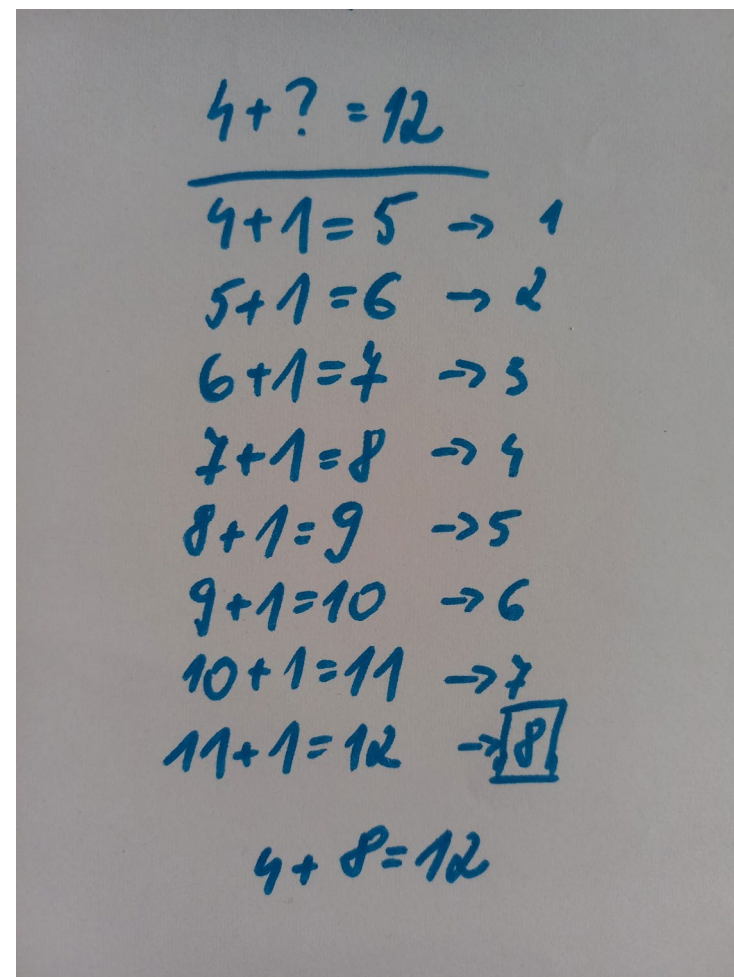 4+? =12
4+1=5 → 1
5+1=6 → 2
6+1=7 → 3
7+1=8 → 4
8+1=9 → 5
9+1=10 → 6
10+1=11 → 7
11+1=12 → 8
4+8=12